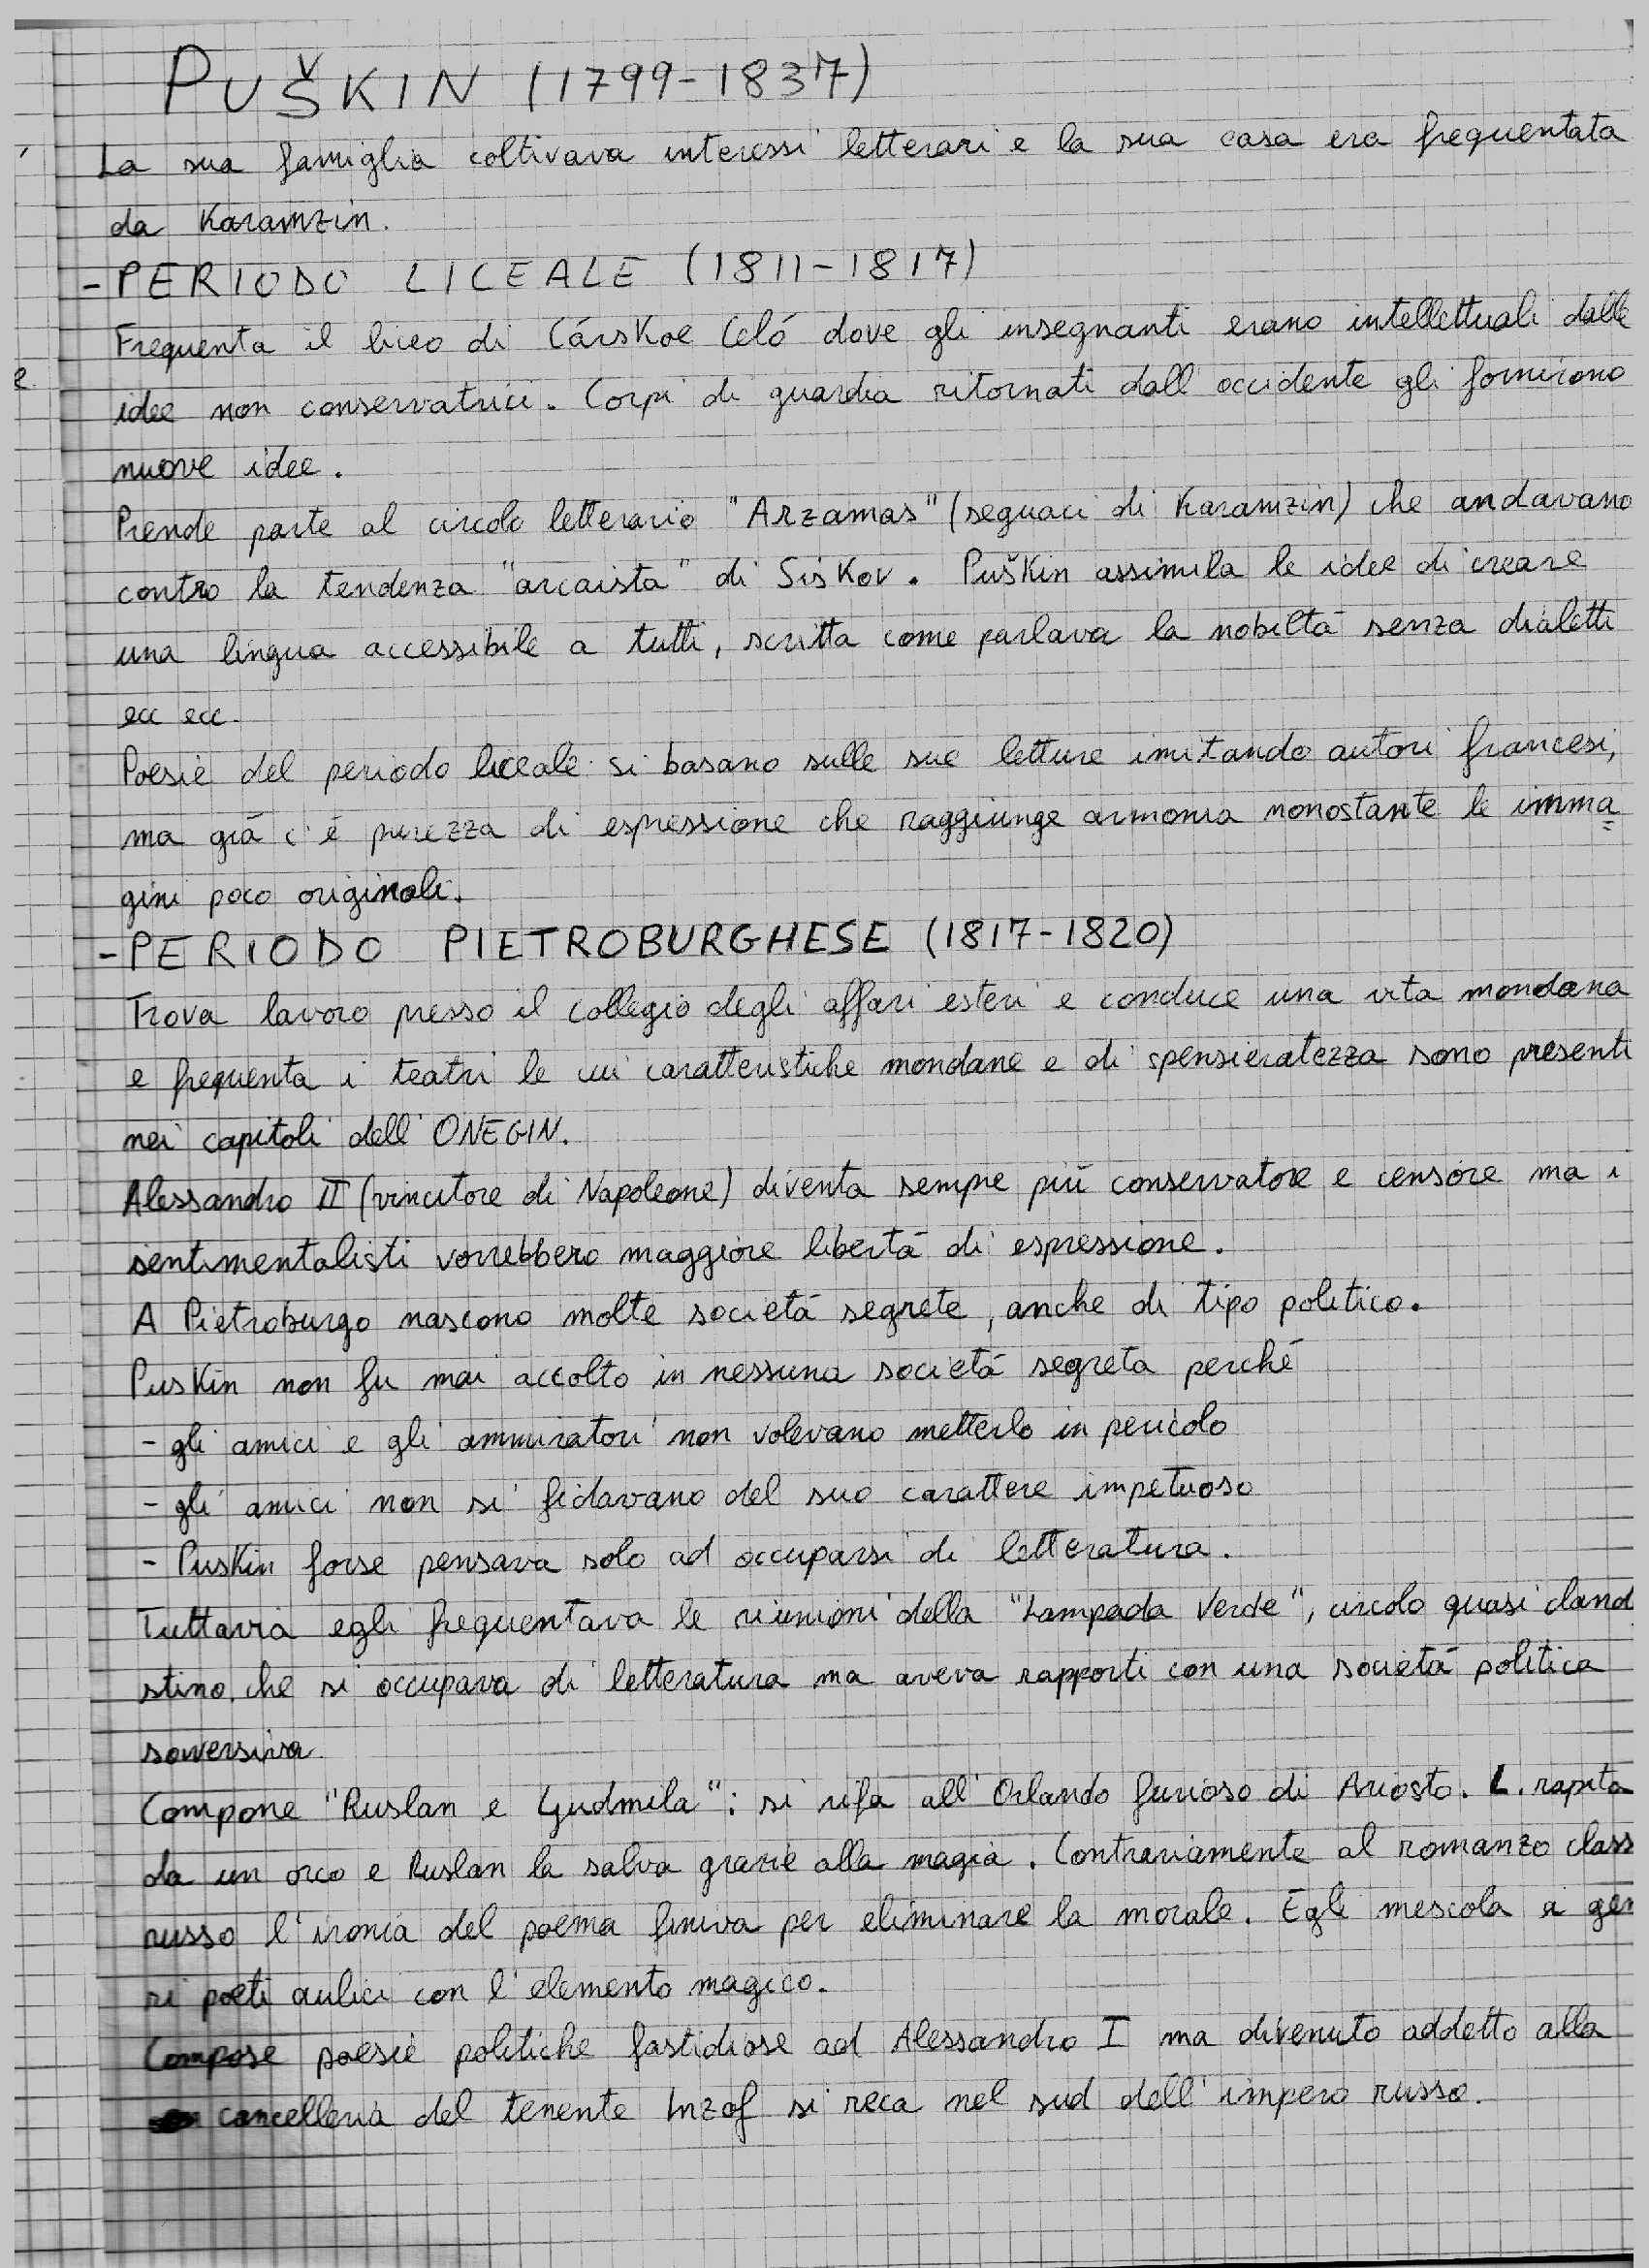 PUŠKIN (1799-1837)
La sua famiglia coltivava interessi letterari e la sua casa era frequentata
da Karamzin.
-PERIODO LICEALE (1811-1817)
Frequenta il liceo di Cárskoe Celó dove gli insegnanti erano intellettuali dalle
idee non conservatrici. Corpi di guardia ritornati dall'occidente gli fornirono
nuove idee.
Prende parte al circolo letterario "Arzamas" (seguaci di Karamzin) che andavano
contro la tendenza "arcaista" di Siskov. Puškin assimila le idee di creare
una lingua accessibile a tutti, scritta come parlava la nobiltà senza dialetti
ecc ecc.
Poesie del periodo liceale si basano sulle sue letture imitando autori francesi,
ma già c'è purezza di espressione che raggiunge armonia nonostante le imma=
gini poco originali.
-PERIODO PIETROBURGHESE (1817-1820)
Trova lavoro presso il collegio degli affari esteri e conduce una vita mondana
e frequenta i teatri le cui caratteristiche mondane e di spensieratezza sono presenti
nei capitoli dell'ONEGIN.
Alessandro II (vincitore di Napoleone) diventa sempre più conservatore e censore ma i
sentimentalisti vorrebbero maggiore libertà di espressione.
A Pietroburgo nascono molte società segrete, anche di tipo politico.
Puskin non fu mai accolto in nessuna società segreta perché
- gli amici e gli ammiratori non volevano metterlo in pericolo
- gli amici non si fidavano del suo carattere impetuoso
- Puskin forse pensava solo ad occuparsi di letteratura.
Tuttavia egli frequentava le riunioni della "Lampada Verde", circolo quasi cland
stino, che si occupava di letteratura ma aveva rapporti con una società politica
sovversiva.
Compone "Ruslan e Ljudmila": si rifà all'Orlando furioso di Ariosto. L. rapita
da un orco e Ruslan la salva grazie alla magia. Contrariamente al romanzo class
russo l'ironia del poema finiva per eliminare la morale. Egli mescola i gen
ri poeti aulici con l'elemento magico.
Compose poesie politiche fastidiose ad Alessandro I ma divenuto addetto alla
cancelleria del tenente Inzof si reca nel sud dell'impero russo.